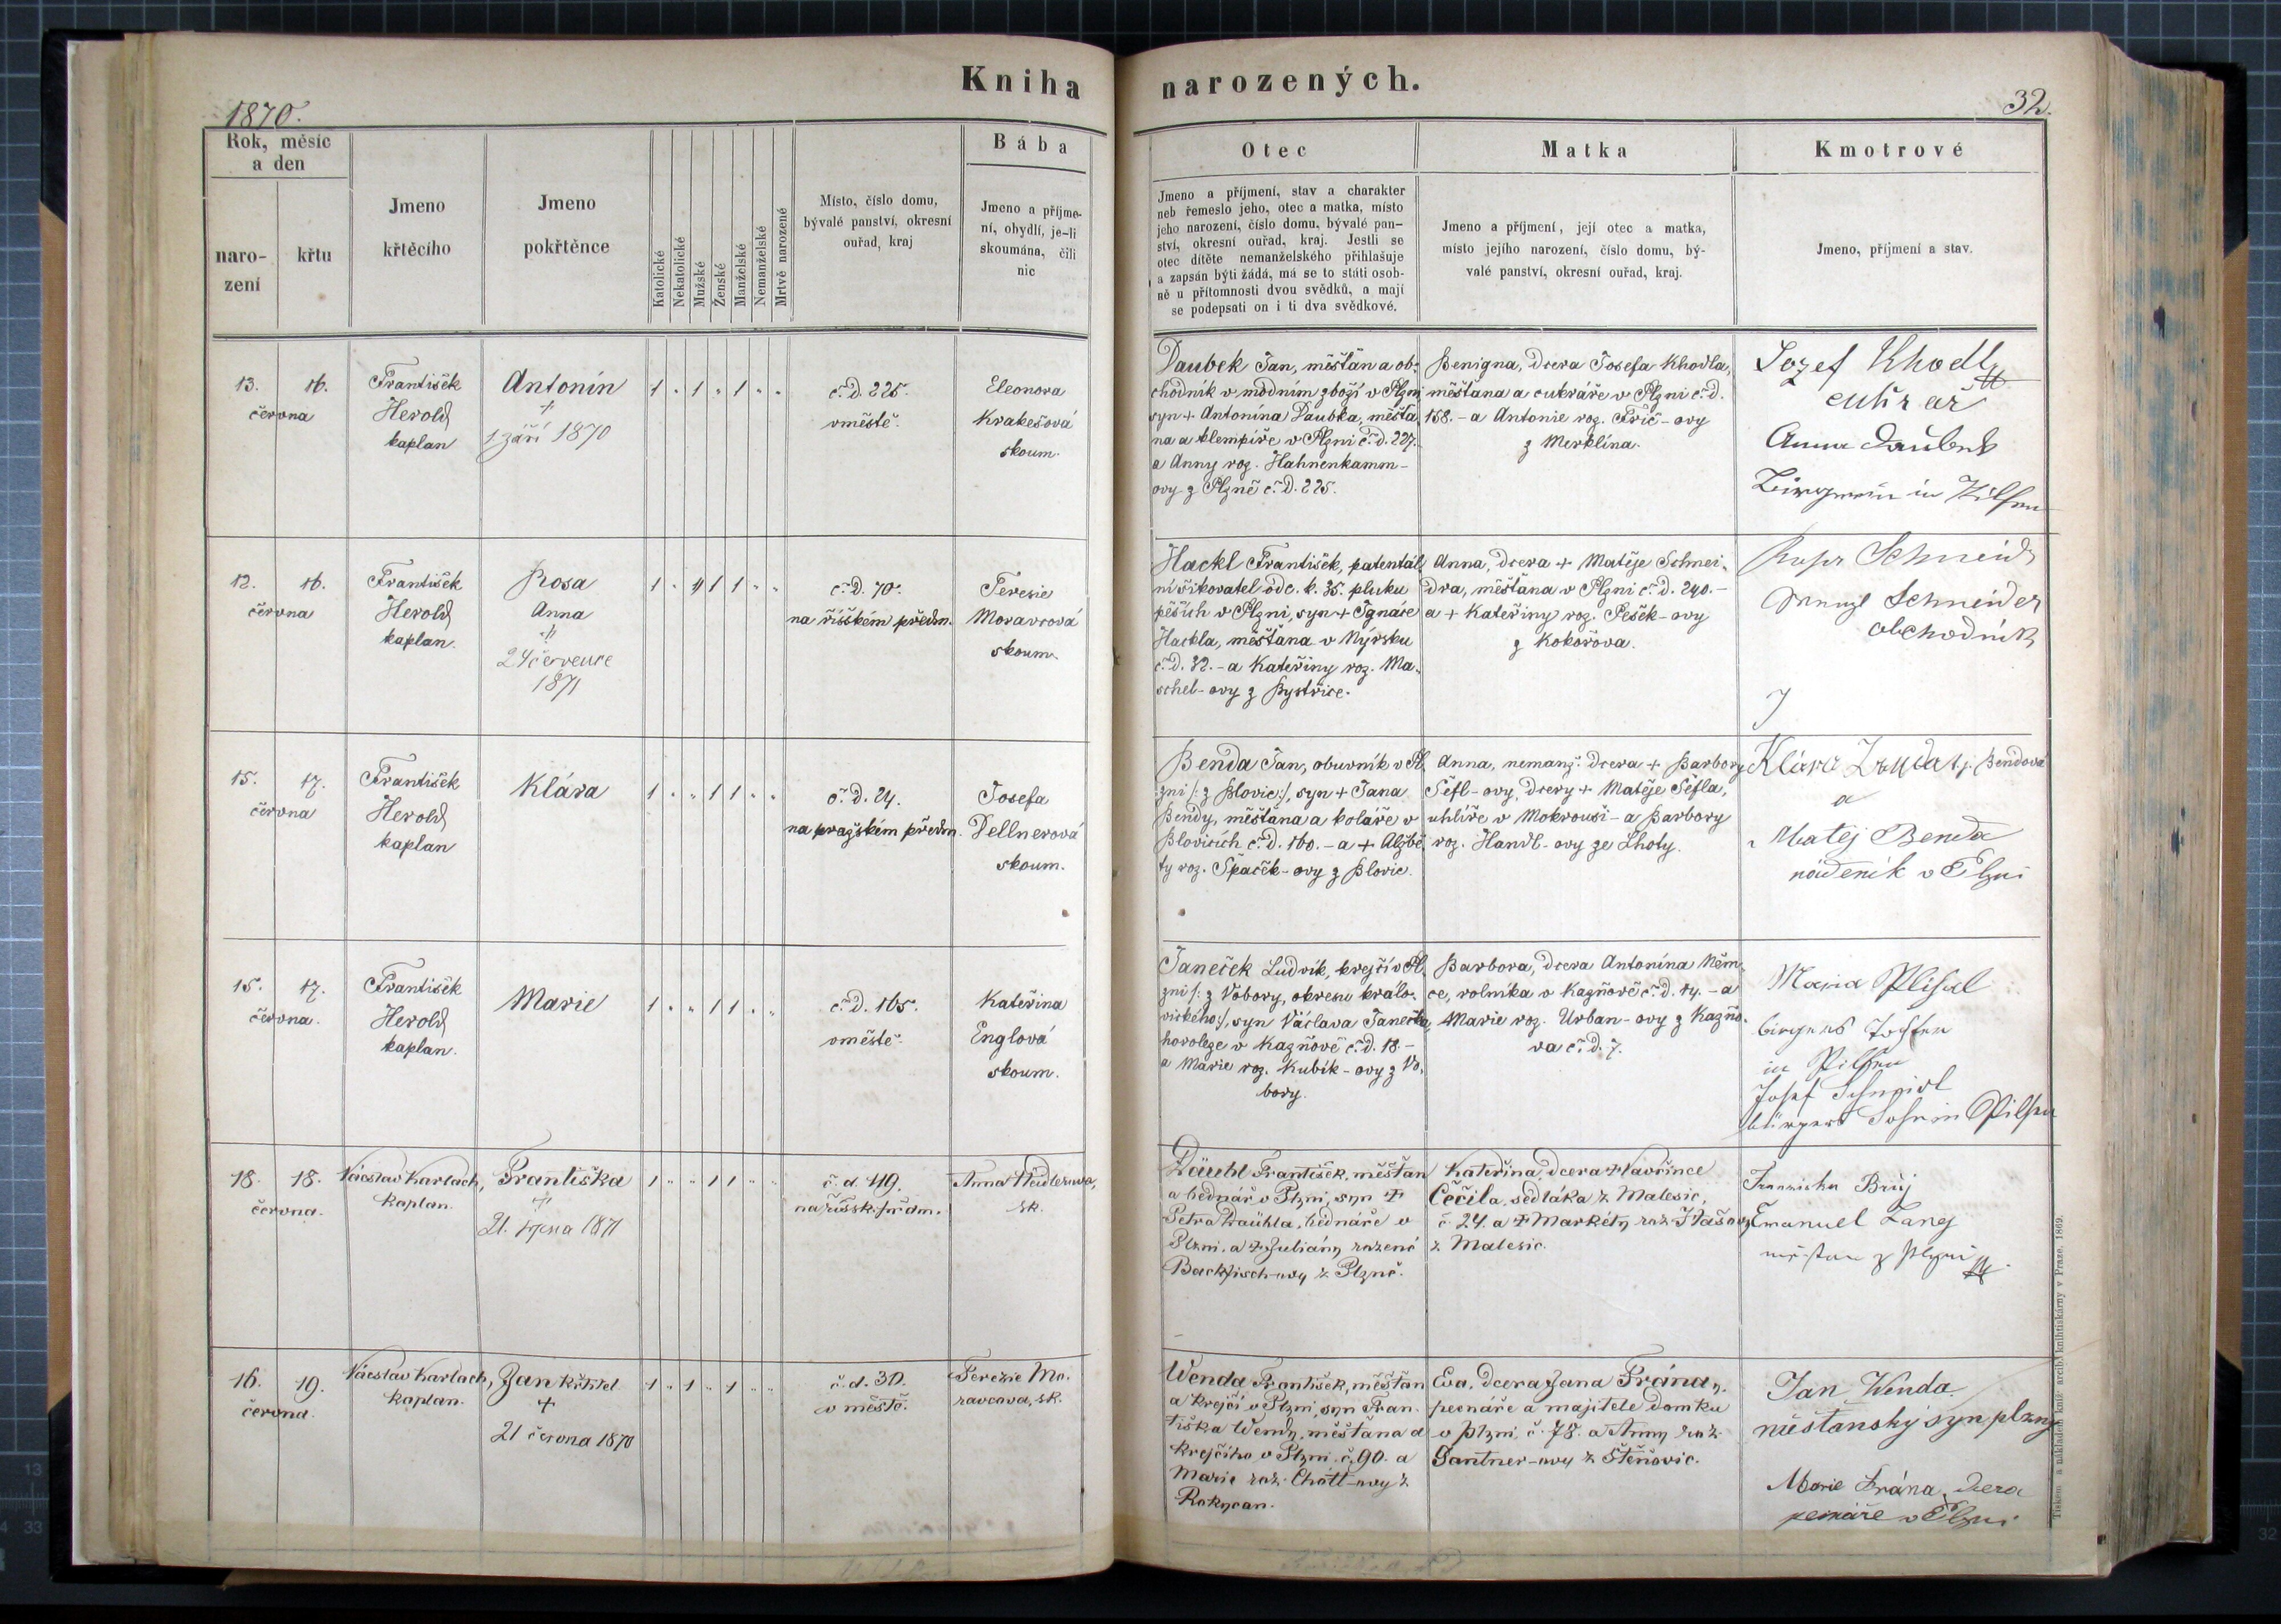 Kniha narozených.
1870.
32.
Rok, měsíc
a den
naro-
zení
křtu
Jmeno
křtěcího
Jmeno
pokřtěnce
Katolické
Nekatolické
Mužské
Ženské
Manželské
Nemanželské
Mrtvě narozené
Místo, číslo domu,
bývalé panství, okresní
ouřad, kraj
Bába
Jmeno a příjme-
ní, obydlí, je-li
skoumána, čili
nic
Otec
Jmeno a příjmení, stav a charakter
neb řemeslo jeho, otec a matka, místo
jeho narození, číslo domu, bývalé pan-
ství, okresní ouřad, kraj. Jestli se
otec dítěte nemanželského přihlašuje
a zapsán býti žádá, má se to státi osob-
ně u přítomnosti dvou svědků, a mají
se podepsati on i ti dva svědkové.
Matka
Jmeno a příjmení, její otec a matka,
místo jejího narození, číslo domu, bý-
valé panství, okresní ouřad, kraj.
Kmotrové
Jmeno, příjmení a stav.
13. 16.
června
František
Herold
kaplan
Antonín
+
1 září 1870
1 " 1 " 1 " "
č. d. 225.
v městě.
Eleonora
Krakešová
skoum.
Daubek Jan, měšťan a ob-
chodník v módním zboží v Plzni
syn + Antonína Daubka, měšťa-
na a klempíře v Plzni č. d. 227.
a Anny roz. Hahnenkamm-
ovy z Plzně č. d. 225.
Benigna, dcera Josefa Khodla,
měšťana a cukráře v Plzni č. d.
158. - a Antonie roz. Frič-ovy
z Merklína.
Jozef Khodl
cukrař
Anna Daubek
in Pilsen
12. 16.
června
František
Herold
kaplan.
Rosa
Anna
+
24 července
1871
1 " " 1 1 " "
č. d. 70.
na říšském předm.
Teresie
Moravcová
skoum.
Hackl František, patentál-
ní šikovatel od c. k. 35. pluku
pěších v Plzni, syn + Ignáce
Hackla, měšťana v Nýrsku
č. d. 32. - a Kateřiny roz. Ma-
schel-ovy z Bystřice.
Anna, dcera + Matěje Schnei-
dra, měšťana v Plzni č. d. 240. -
a + Kateřiny roz. Pešek-ovy
z Kokořova.
Schneider
obchodník
15. 17.
června
František
Herold
kaplan
Klára
1 " " 1 1 " "
č. d. 24.
na pražském předm.
Josefa
Dellnerová
skoum.
Benda Jan, obuvník v Pl-
zni /: z Blovic :/, syn + Jana
Bendy, měšťana a koláře v
Blovicích č. d. 160. - a + Alžbě-
ty roz. Špaček-ovy z Blovic.
Anna, nemanž. dcera + Barbory
Šefl-ovy, dcery + Matěje Šefla,
uhlíře v Mokrouši - a Barbory
roz. Handl-ovy ze Lhoty.
Klára Bendová
a
Matěj Benda
nádeník v Plzni
15. 17.
června.
František
Herold
kaplan.
Marie
1 " " 1 1 " "
č. d. 165.
v městě.
Kateřina
Englová
skoum.
Janeček Ludvík, krejčí v Pl-
zni /: z Vobory, okresu králo-
vického :/, syn Václava Janečka,
horoleze v Kazňově č. d. 18. -
a Marie roz. Kubík-ovy z Vo-
bory.
Barbora, dcera Antonína Něm-
ce, rolníka v Kazňově č. d. 14. - a
Marie roz. Urban-ovy z Kazňo-
va č. d. 7.
Maria
in Pilsen
Josef
Sohn in Pilsen
18. 18.
června.
Václav Karlach,
kaplan.
Františka
+
21. srpna 1871
1 " " 1 1 " "
č. d. 49.
na říšsk. předm.
Anna
sk.
Däuhl František, měšťan
a bednář v Plzni, syn +
Petra Däuhla, bednáře v
Plzni, a + Juliány rozené
Backfisch-ovy z Plzně.
Kateřina, dcera + Vavřince
Čečila, sedláka z Malesic,
č. 24. a + Markéty roz.
z Malesic.
Emanuel Lang
měšťan z Plzni
16. 19.
června.
Václav Karlach,
kaplan.
Jan křtitel
+
21 června 1870
1 " 1 " 1 " "
č. d. 30.
v městě.
Terezie Mo-
ravcova, sk.
Wenda František, měšťan
a krejčí v Plzni, syn Fran-
tiška Wendy, měšťana a
krejčího v Plzni č. 90. a
Marie roz. Chott-ovy z
Rokycan.
Eva, dcera Jana Frány,
pernáře a majitele domku
v Plzni č. 78. a Anny roz.
Gantner-ovy z Štěňovic.
Jan Wenda
měšťanský syn plzný
Marie Frána, dcera
pernáře v Plzni
Tiskem a nákladem kníž. arcib. knihtiskárny v Praze. 1869.